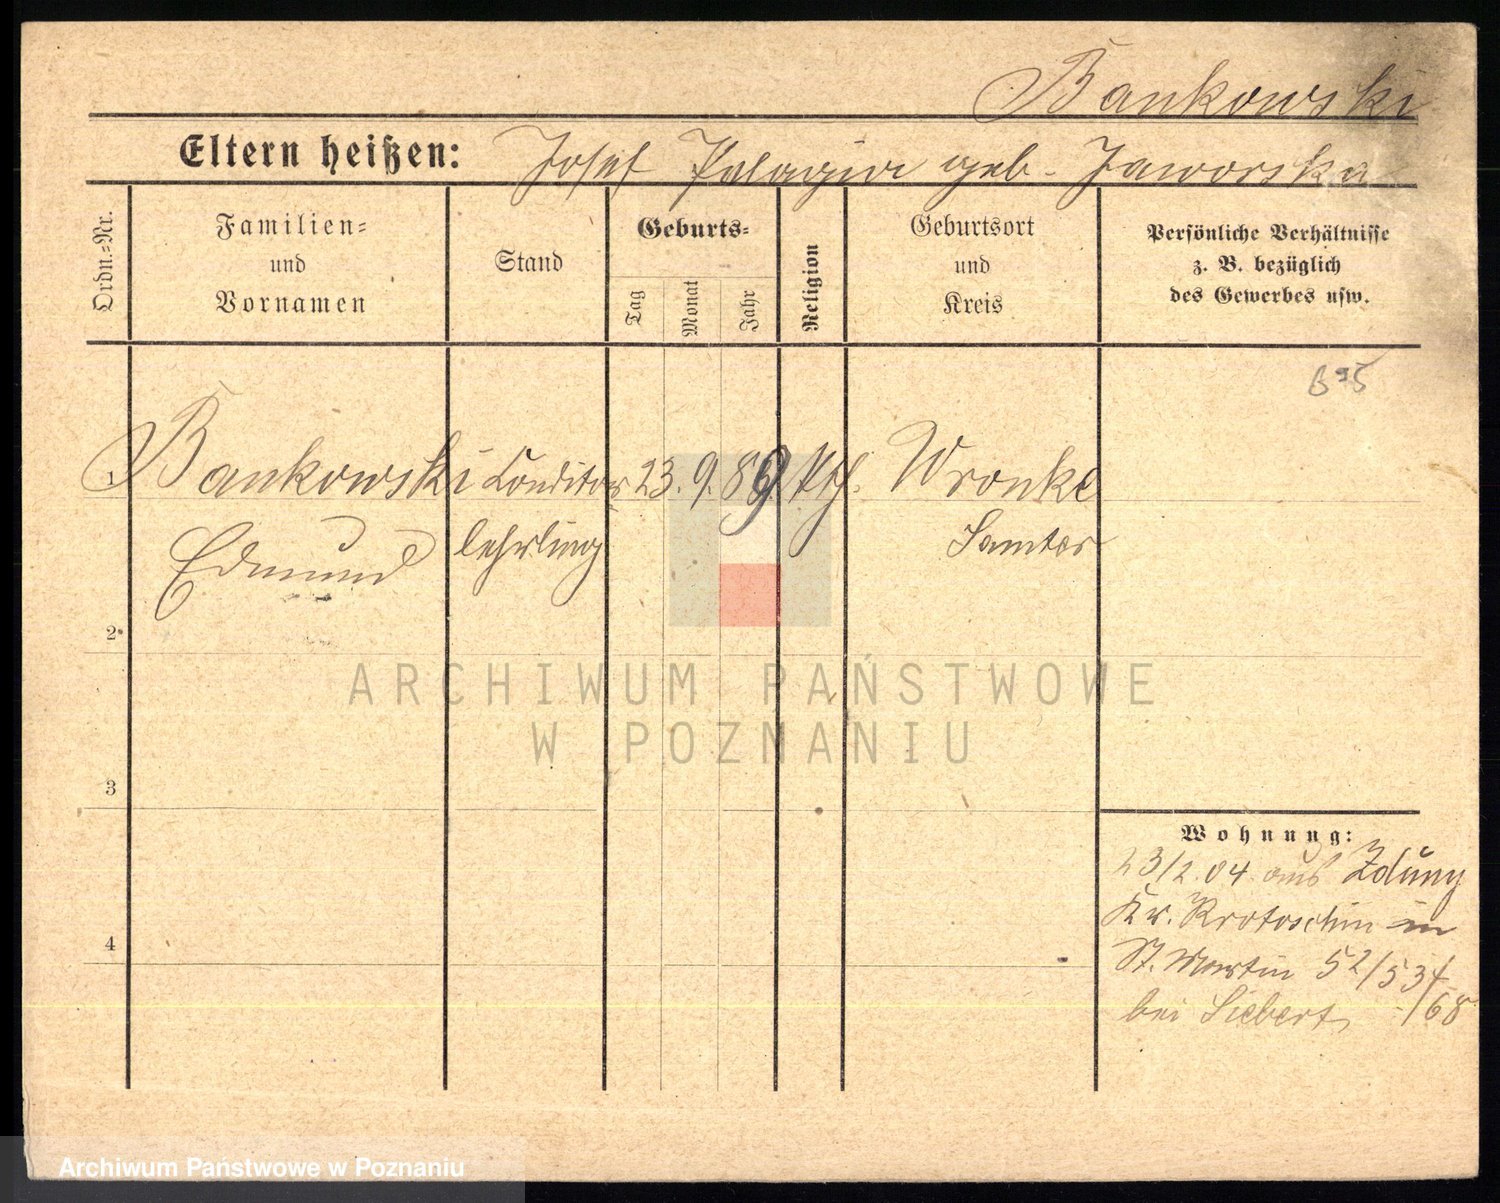 Bankowski
Eltern heißen: Josef Pelagia geb. Jaworska
Ordn.-Nr.
Familien- und Vornamen
Stand
Geburts-
Tag
Monat
Jahr
Religion
Geburtsort und Kreis
Persönliche Verhältnisse
z. B. bezüglich
des Gewerbes usw.
1 Bankowski Conditor 23. 9. 89 kth. Wronke
Edmund lehrling Samter
2
3
4
Wohnung:
23/2. 04. aus Zduny
Kr. Krotoschin in
St. Martin 52/53
bei Siebert /68
ARCHIWUM PAŃSTWOWE
W POZNANIU
Archiwum Państwowe w Poznaniu